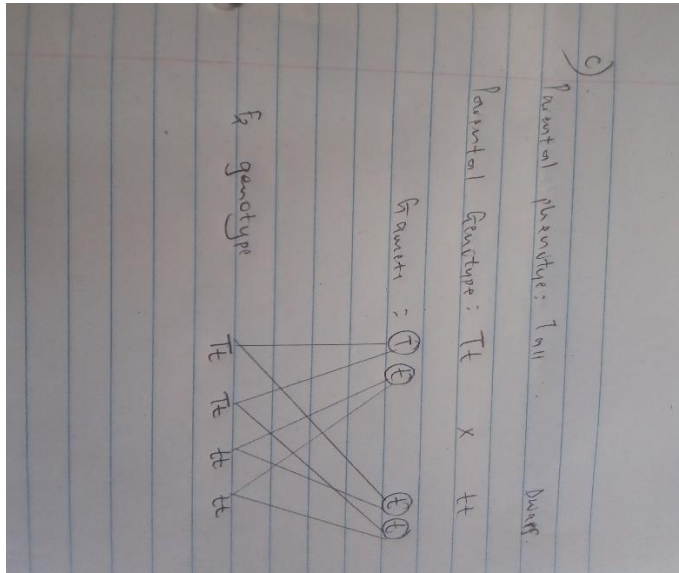 c)
Parental phenotype: Tall Dwarf.
Parental Genotype: Tt x tt
Gamete = T t t t
F2 genotype Tt Tt tt tt